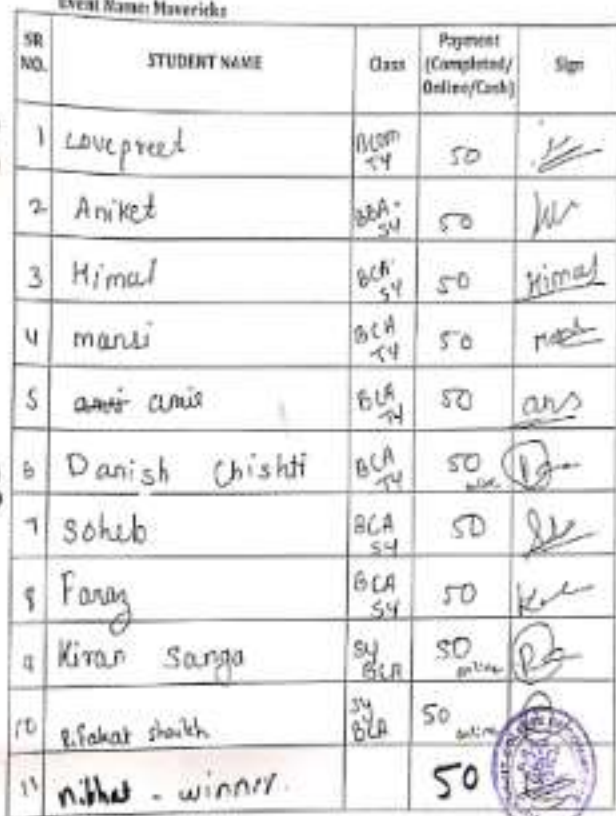 Event Name: Mavericks
SR NO. STUDENT NAME Class Payment (Completed/Online/Cash) Sign
1 Lovepreet BCOM TY 50
2 Aniket BBA- SY 50
3 Himal BCA SY 50 Himal
4 mansi BCA TY 50
5 BCA TY 50
6 Danish Chishti BCA TY 50 online
7 Soheb BCA SY 50
8 Faraz BCA SY 50
9 Kiran Sanga SY BCA 50 online
10 shaikh SY BCA 50 online
11 nibhat - winner. 50